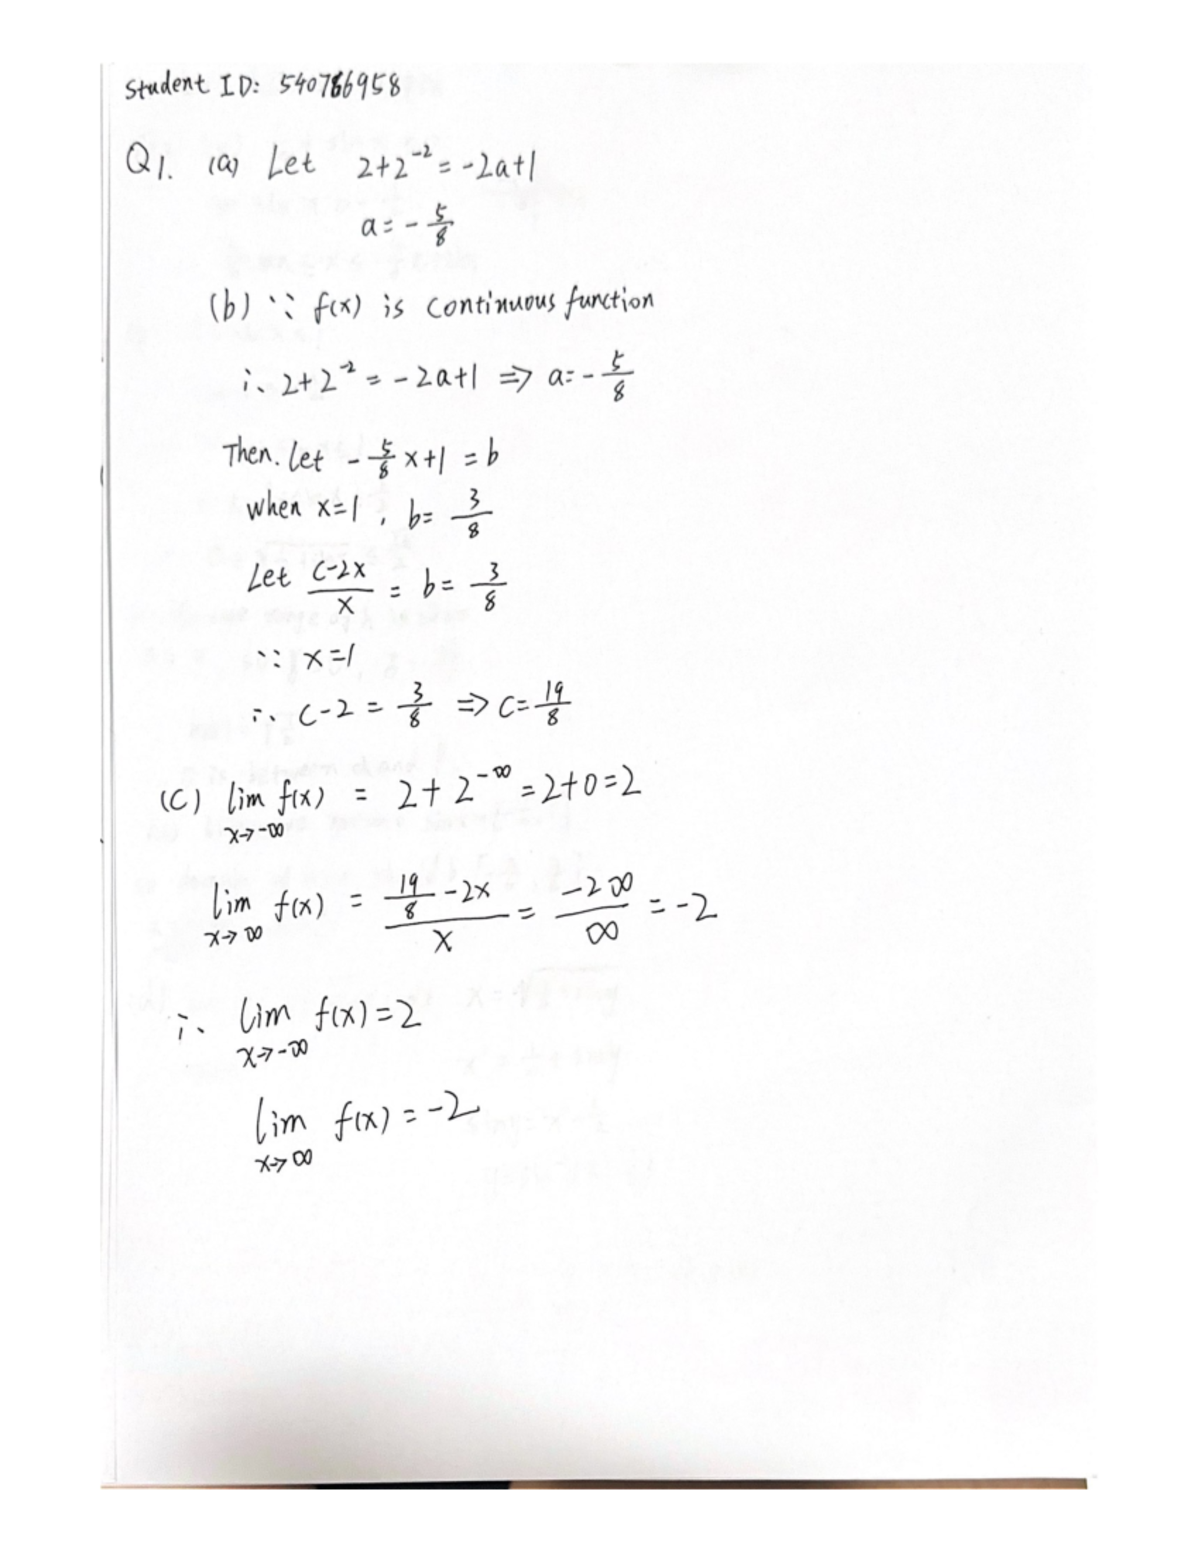 Student ID: 540766958
Q1. (a) Let 2+2⁻²=-2a+1
a=-5/8
(b) ∵ f(x) is continuous function
∴ 2+2⁻²=-2a+1 ⇒ a=-5/8
Then. Let -5/8 x+1 = b
when x=1, b= 3/8
Let (c-2x)/x = b= 3/8
∵ x=1
∴ c-2 = 3/8 ⇒ c=19/8
(C) lim x→-∞ f(x) = 2+2^-∞ =2+0=2
lim x→∞ f(x) = (19/8 -2x)/x = -2∞/∞ = -2
∴ lim x→-∞ f(x)=2
lim x→∞ f(x)=-2